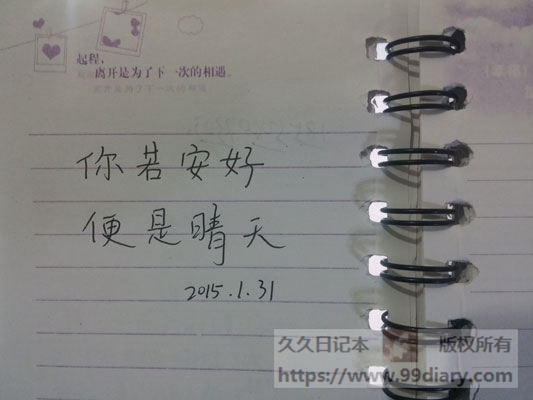 起程，
离开是为了下一次的相遇。
离开是为了下一次的相遇
你若安好
便是晴天
2015.1.31
久久日记本 版权所有
https://www.99diary.com